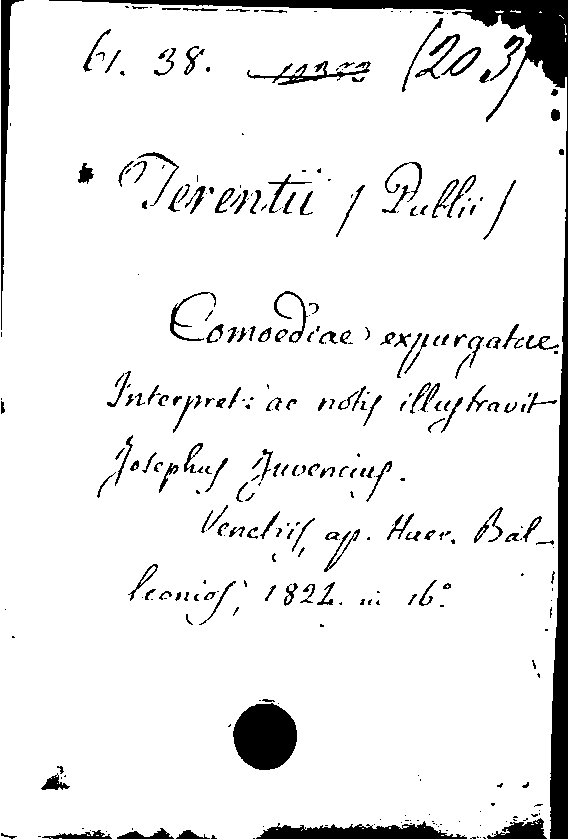 61. 38. (203)
Terentii / Publii /
Comoediae expurgatae.
Interpret: ac notis illustravit
Josephus Juvencius.
Venetiis, ap. Haer. Bal-
leonios, 1821. in 16°.